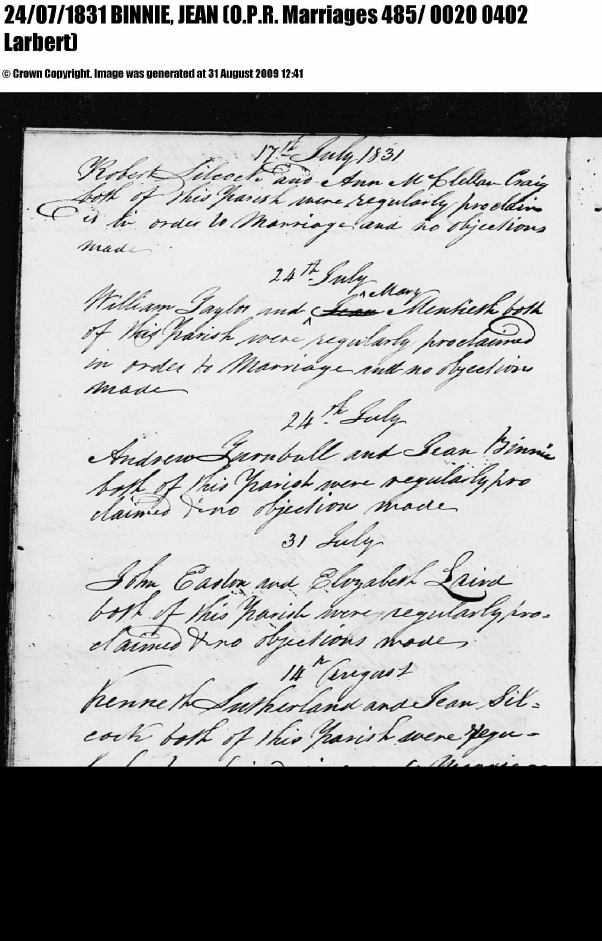 24/07/1831 BINNIE, JEAN (O.P.R. Marriages 485/ 0020 0402
Larbert)
© Crown Copyright. Image was generated at 31 August 2009 12:41
17th July 1831
Robert Silcock and Ann McClellan Craig
both of this Parish were regularly proclaim
ed in order to Marriage and no objections
made
24th July
William Taylor and Jean ^ Mary Menteith both
of this Parish were regularly proclaimed
in order to Marriage and no objections
made
24th July
Andrew Turnbull and Jean Binnie
both of this Parish were regularly pro
claimed & no objection made
31 July
John Easton and Elizabeth Laird
both of this Parish were regularly pro=
claimed & no objections made
14th August
Kenneth Sutherland and Jean Sil=
cock both of this Parish were regu=